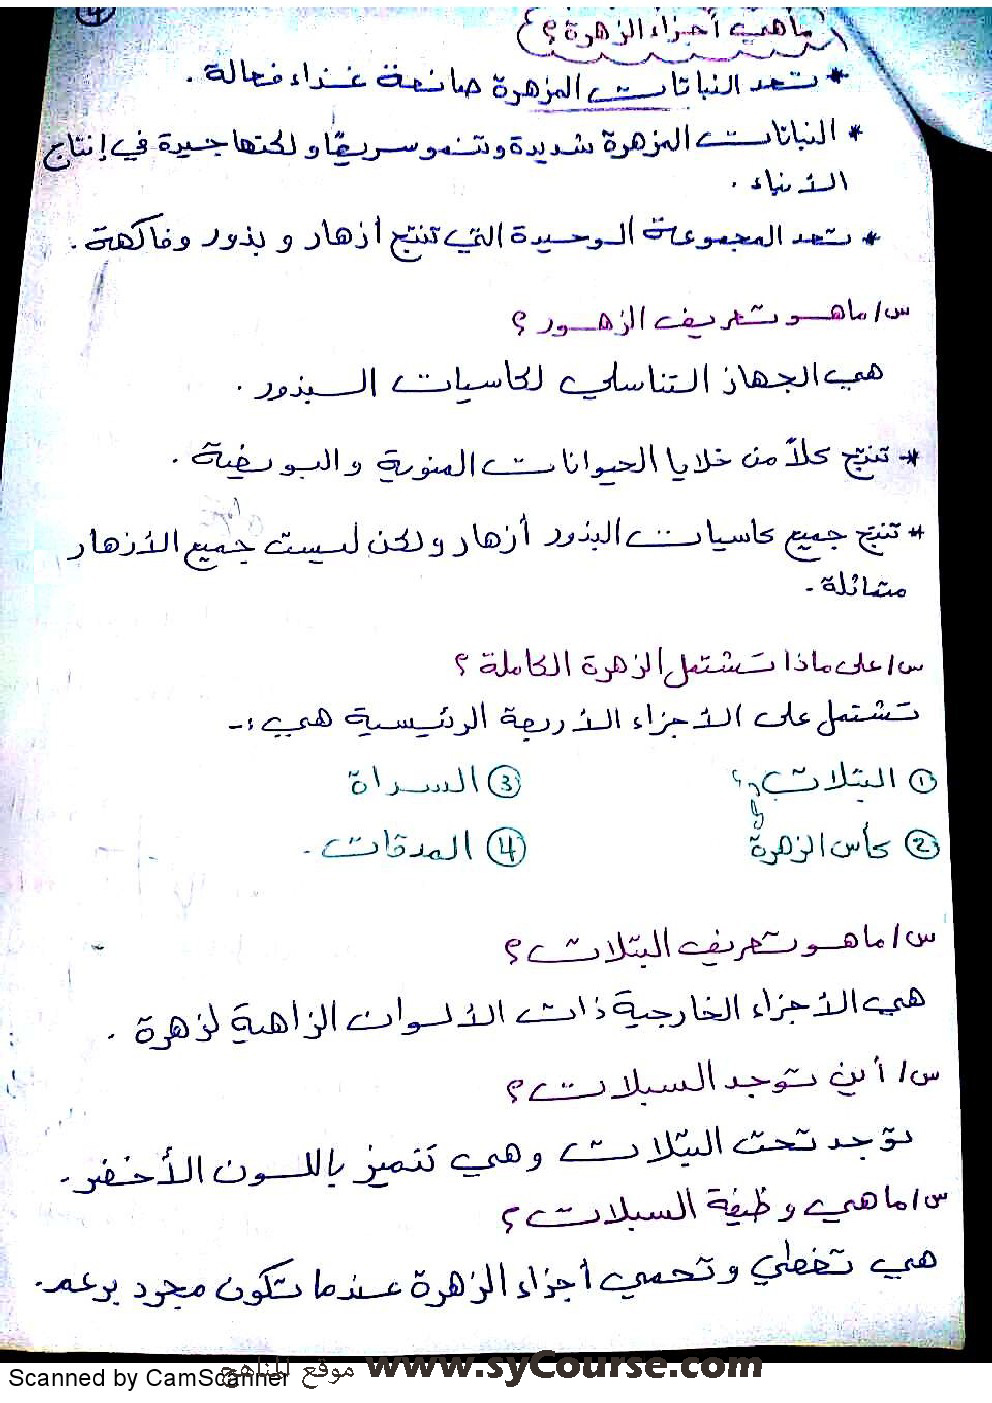 4
ماهي أجزاء الزهرة؟
* تعد النباتات المزهرة صانعة غذاء فعالة.
* النباتات المزهرة شديدة وتنمو سريعًا ولكنها جيدة في إنتاج
الأنباء.
* تعد المجموعة الوحيدة التي تنتج أزهار و بذور وفاكهة.
س/ ماهو تعريف الزهور؟
هي الجهاز التناسلي لكاسيات البذور.
* تنتج كلاً من خلايا الحيوانات المنوية والبويضية.
* تنتج جميع كاسيات البذور أزهار ولكن ليست جميع الأزهار
متماثلة.
س/ على ماذا تشتمل الزهرة الكاملة؟
تشتمل على الأجزاء الأربعة الرئيسية هي:-
① البتلات ③ السداة
② كأس الزهرة ④ المدقات.
س/ ماهو تعريف البتلات؟
هي الأجزاء الخارجية ذات الألوان الزاهية لزهرة.
س/ أين توجد السبلات؟
توجد تحت البتلات وهي تتميز باللون الأخضر.
س/ ماهي وظيفة السبلات؟
هي تغطي وتحمي أجزاء الزهرة عندما تكون مجرد برعم.
موقع المناهج www.syCourse.com
Scanned by CamScanner